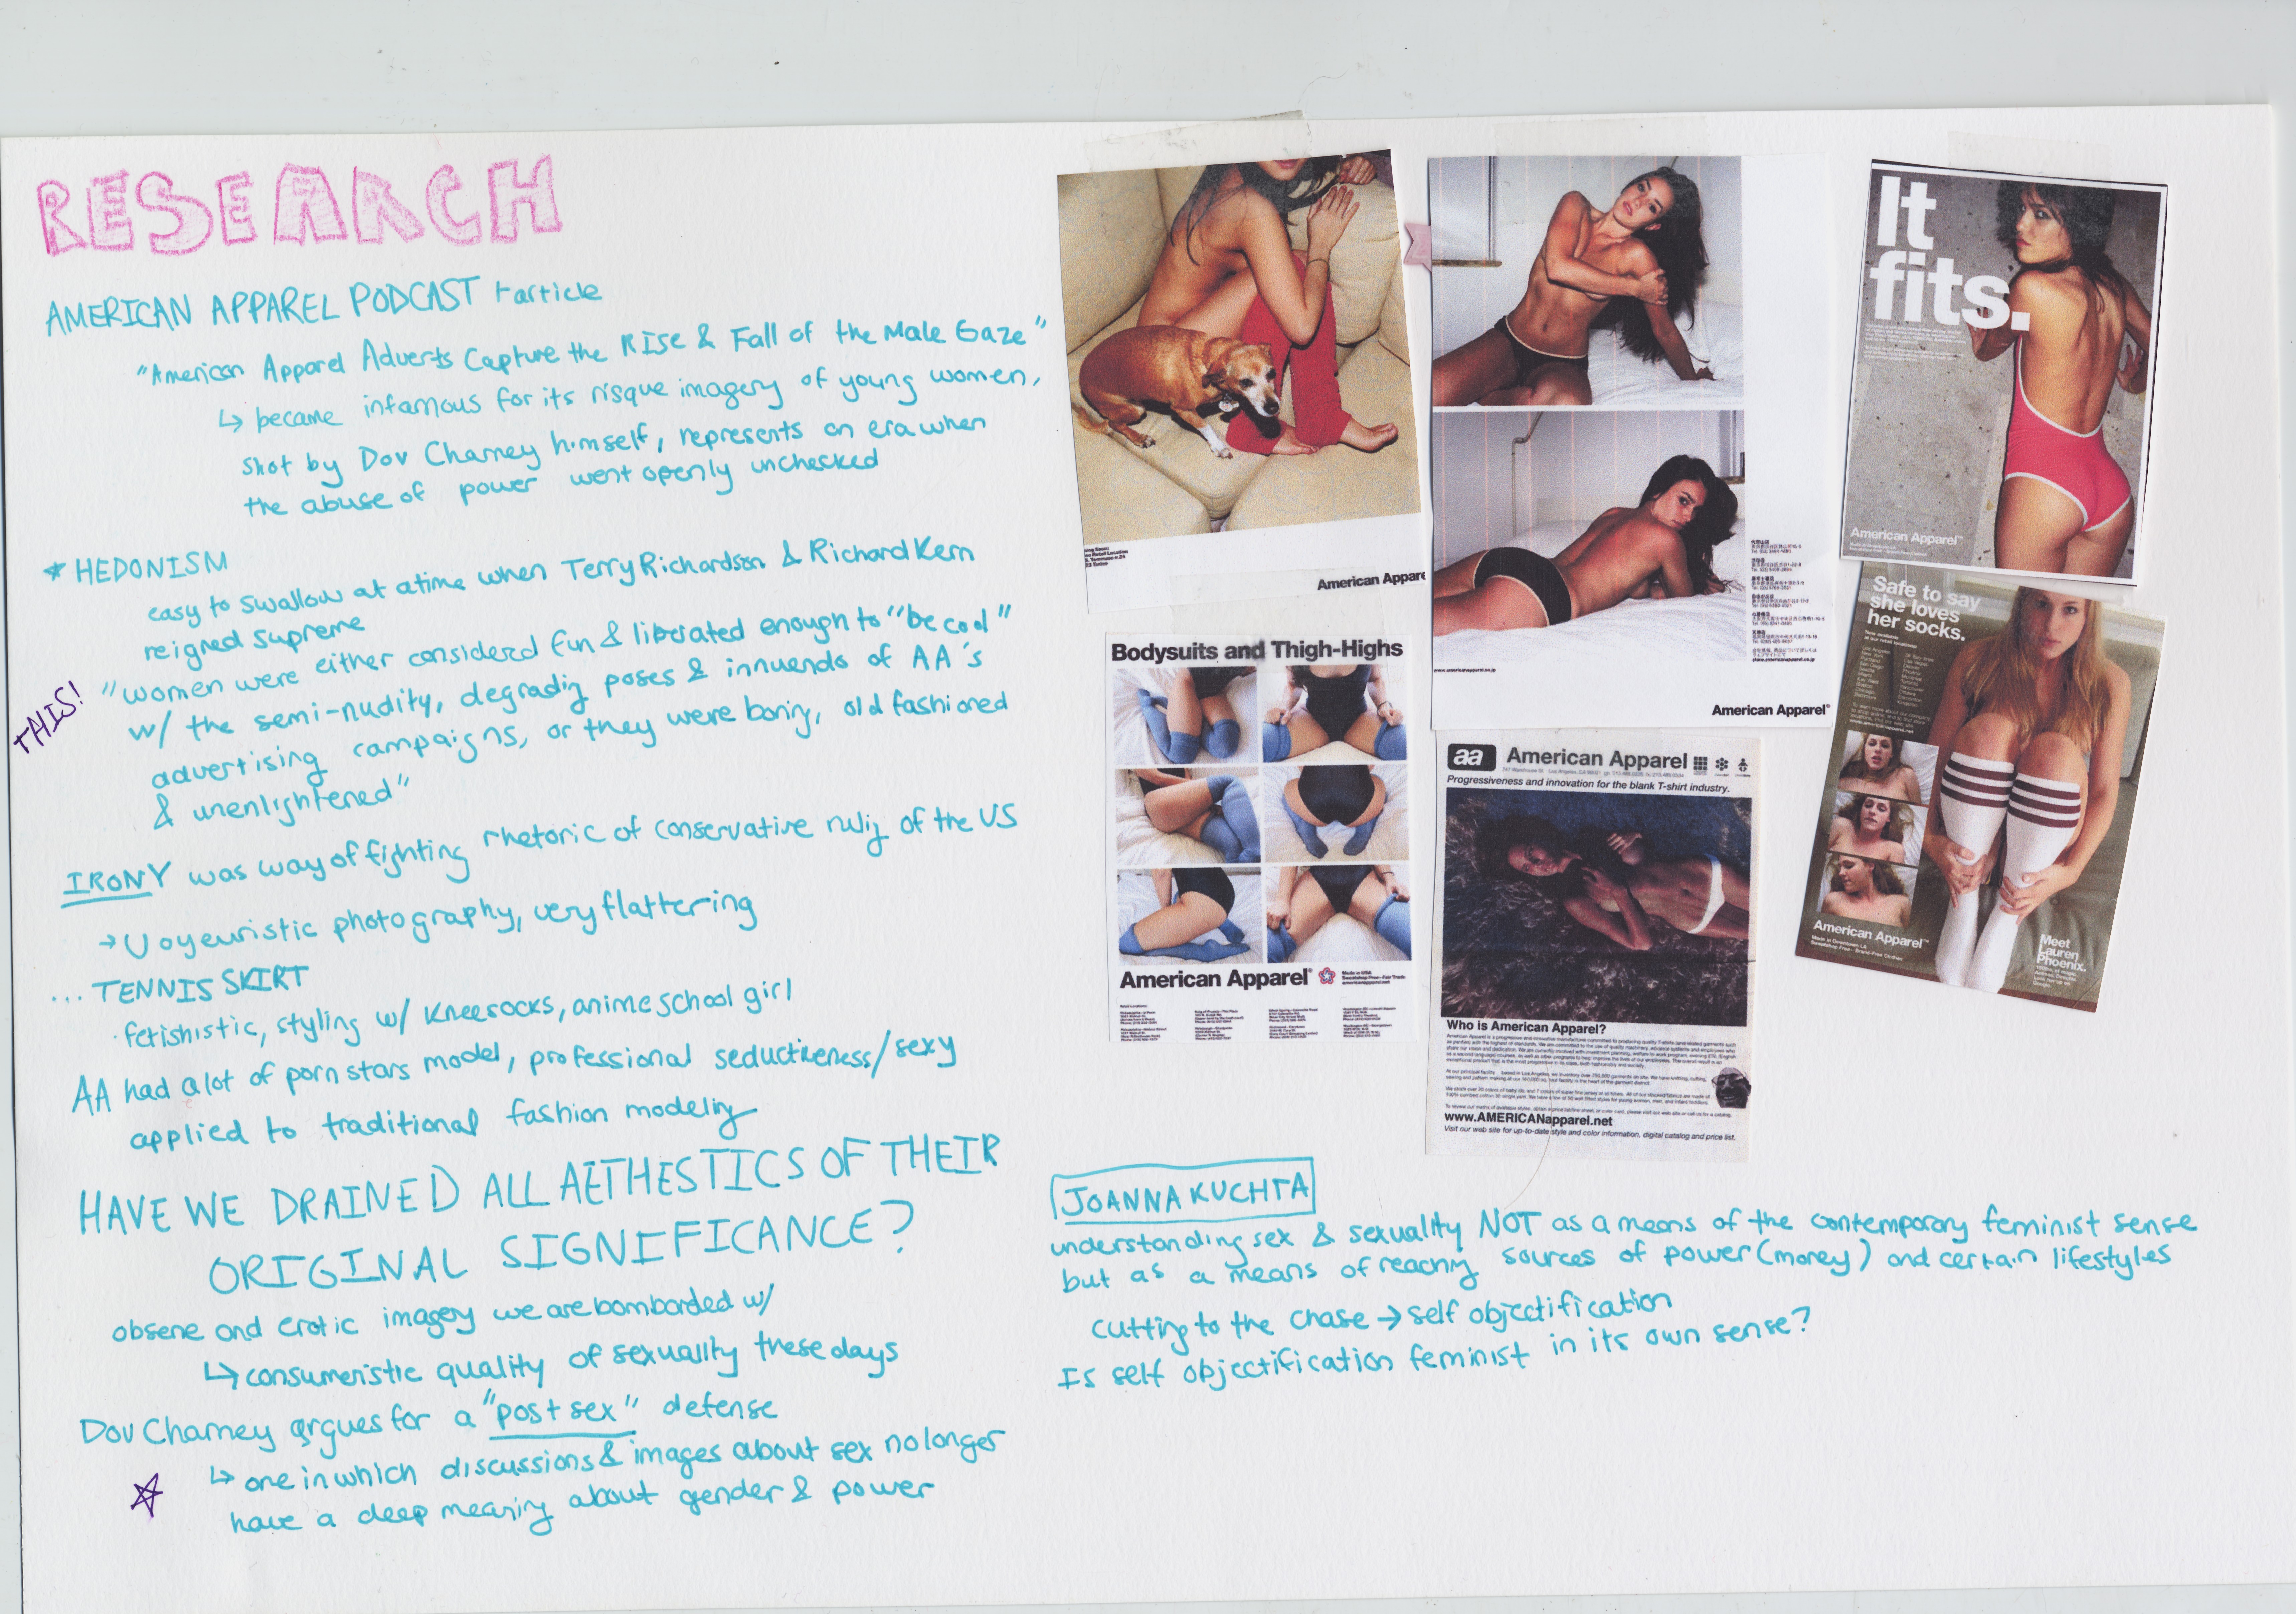 RESEARCH
AMERICAN APPAREL PODCAST + article
"American Apparel Adverts Capture the RISE & Fall of the Male Gaze"
↳ became infamous for its risque imagery of young women,
shot by Dov Charney himself, represents an era when
the abuse of power went openly unchecked
* HEDONISM
easy to swallow at a time when Terry Richardson & Richard Kern
reigned supreme
THIS!
"women were either considered fun & liberated enough to "be cool"
w/ the semi-nudity, degrading poses & innuendo of AA's
advertising campaigns, or they were boring, old fashioned
& unenlightened"
IRONY was way of fighting rhetoric of conservative ruling of the US
→ Voyeuristic photography, very flattering
... TENNIS SKIRT
· fetishistic, styling w/ kneesocks, anime school girl
AA had a lot of porn stars model, professional seductiveness/sexy
applied to traditional fashion modeling
HAVE WE DRAINED ALL AETHESTICS OF THEIR
ORIGINAL SIGNIFICANCE?
obsene and erotic imagery we are bombarded w/
↳ consumeristic quality of sexuality these days
Dov Charney argues for a "post sex" defense
↳ one in which discussions & images about sex no longer
have a deep meaning about gender & power
American Appare
www.americanapparel.co.jp
American Apparel®
It
fits.
American Apparel™
Bodysuits and Thigh-Highs
American Apparel®
Made in USA
Sweatshop Free—Fair Trade
americanapparel.net
aa American Apparel
Progressiveness and innovation for the blank T-shirt industry.
Who is American Apparel?
www.AMERICANapparel.net
Visit our web site for up-to-date style and color information, digital catalog and price list.
Safe to say
she loves
her socks.
Now available
at our retail locations:
American Apparel™
Made in Downtown LA
Sweatshop Free—Brand-Free Clothes
Meet
Lauren
Phoenix.
JOANNA KUCHTA
understanding sex & sexuality NOT as a means of the contemporary feminist sense
but as a means of reaching sources of power (money) and certain lifestyles
cutting to the chase → self objectification
Is self objectification feminist in its own sense?